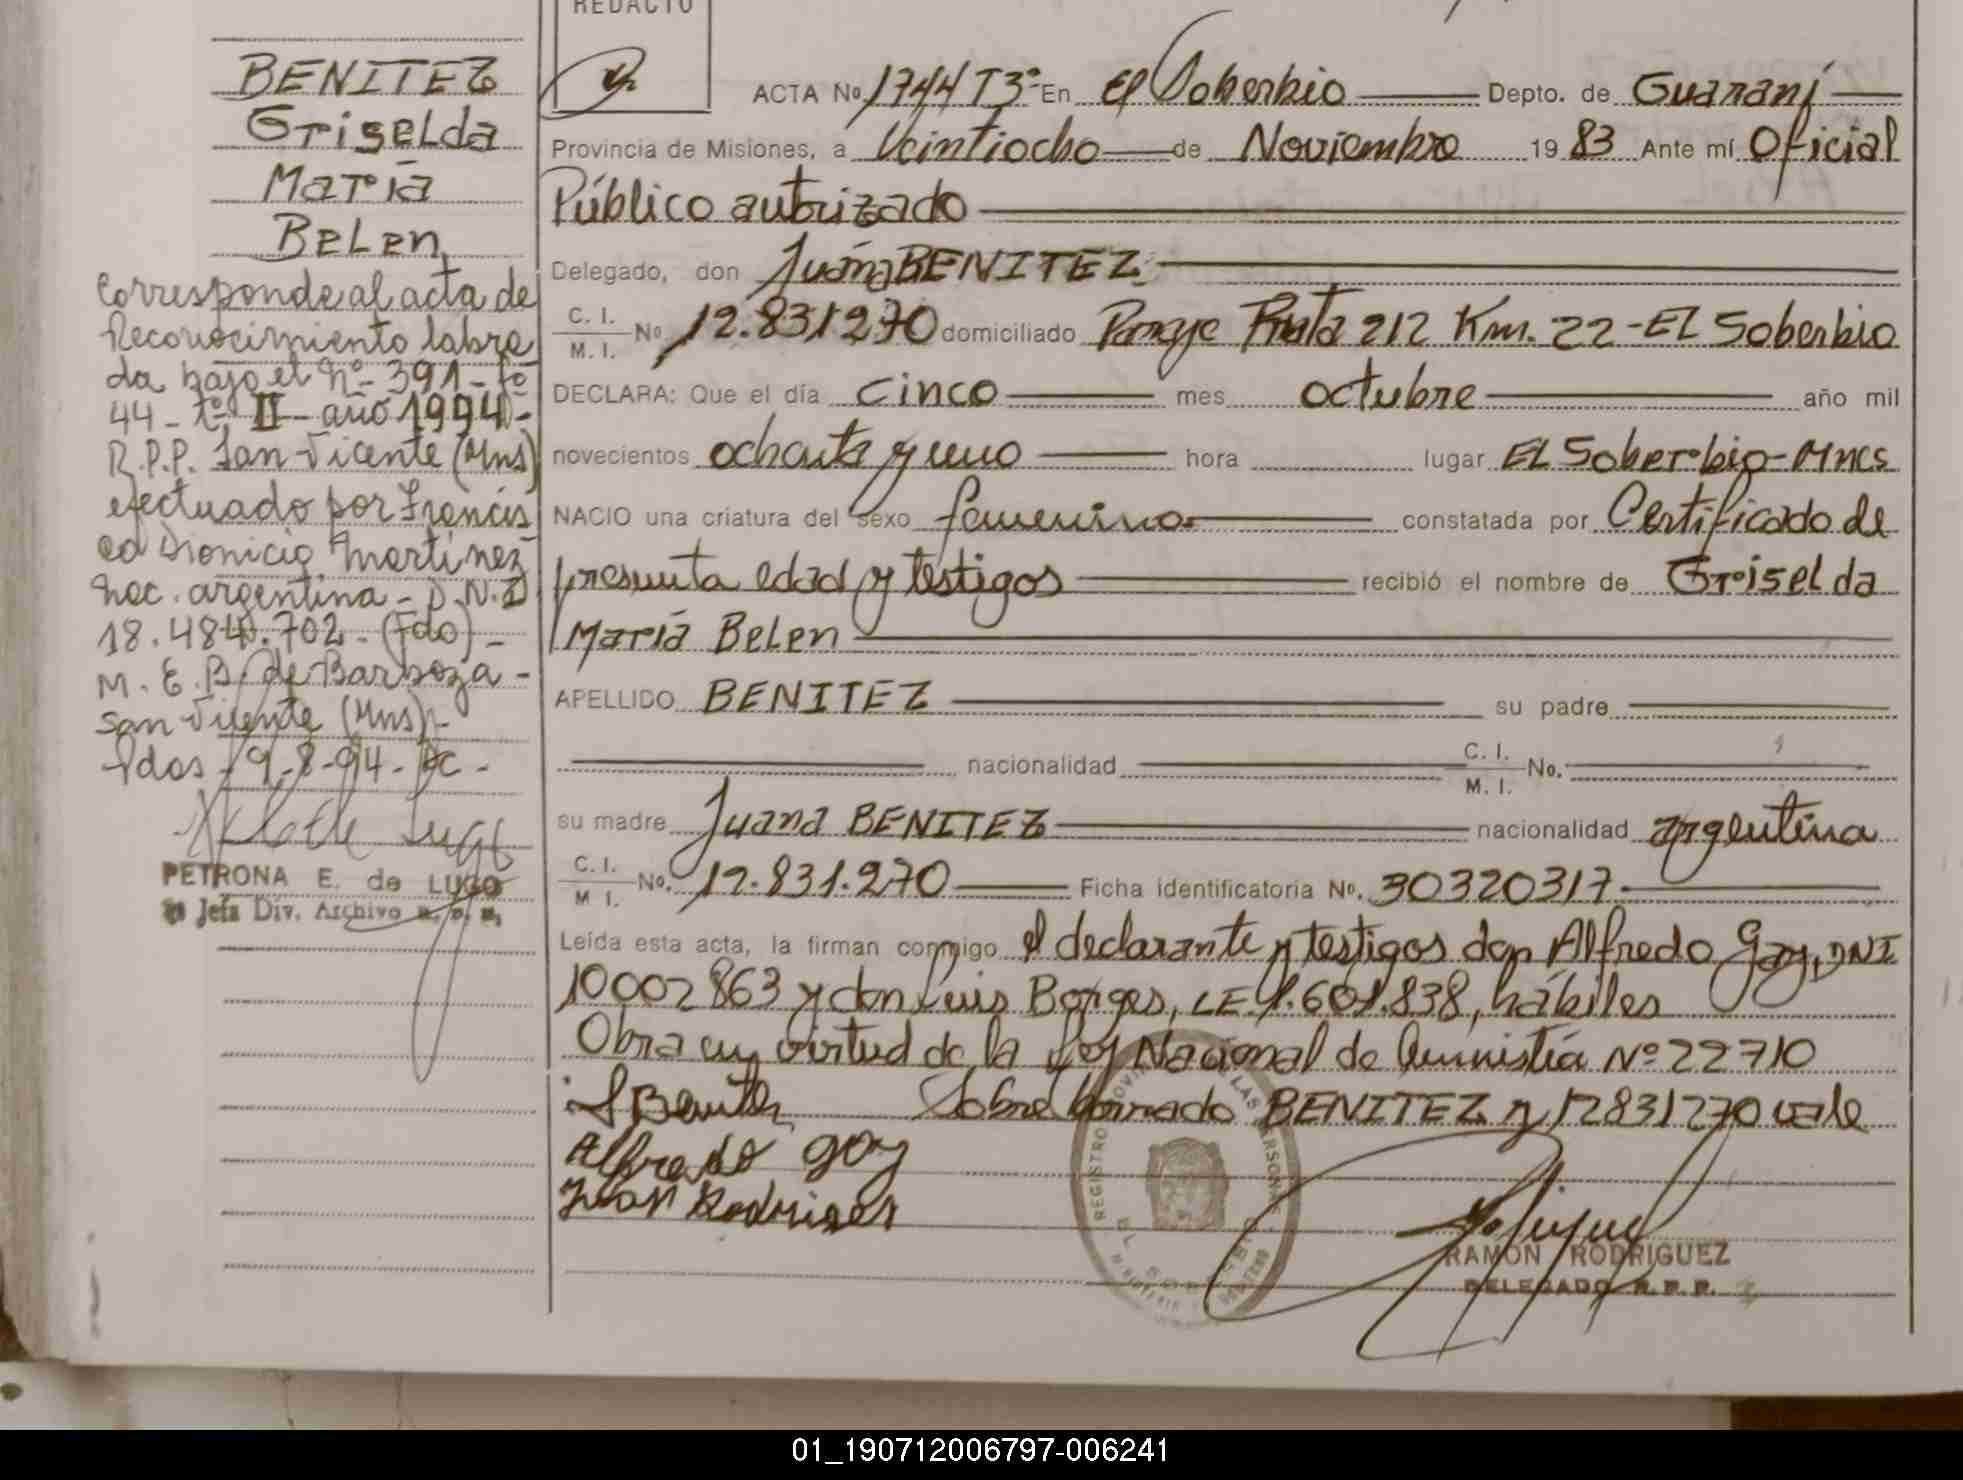 REDACTO
BENITEZ
Griselda
María
Belen
Corresponde al acta de
Reconocimiento labra
da bajo el Nº 391 - fº
44 - tº II - año 1994 -
R.P.P. San Vicente (Mns)
efectuado por Francis
co Dionicio Martínez
nac. argentina - D.N.I
18.484.702 - (Fdo) -
M. E. B. de Barboza -
San Vicente (Mns) -
Pdas - 9-8-94 -
PETRONA E. de LUGO
Jefa Div. Archivo R. P. P.
ACTA No 1744 T3º En El Soberbio Depto. de Guaraní
Provincia de Misiones, a Veintiocho de Noviembre 19 83 Ante mí Oficial
Público autorizado
Delegado, don Juana BENITEZ
C. I.
M. I. No 12.831270 domiciliado Paraje Ruta 212 Km. 22 - EL Soberbio
DECLARA: Que el día cinco mes octubre año mil
novecientos ochenta y uno hora lugar EL Soberbio - Mnes
NACIO una criatura del sexo femenino constatada por Certificado de
presunta edad y testigos recibió el nombre de Griselda
María Belen
APELLIDO BENITEZ su padre
nacionalidad C. I.
M. I. No.
su madre Juana BENITEZ nacionalidad argentina
C. I.
M I. No. 12.831.270 Ficha identificatoria No. 30320317
Leída esta acta, la firman conmigo el declarante y testigos don Alfredo Goy, DNI
10002863 y don Luis Borges, LE. 1.601.838, hábiles
Obra en virtud de la Ley Nacional de Amnistía Nº 22710
J Benitez Sobre borrado BENITEZ y 12831270 vale
Alfredo goy
Juan Rodrigues
REGISTRO PROVINCIAL DE LAS PERSONAS
RAMON RODRIGUEZ
DELEGADO R.P.P.
01_190712006797-006241